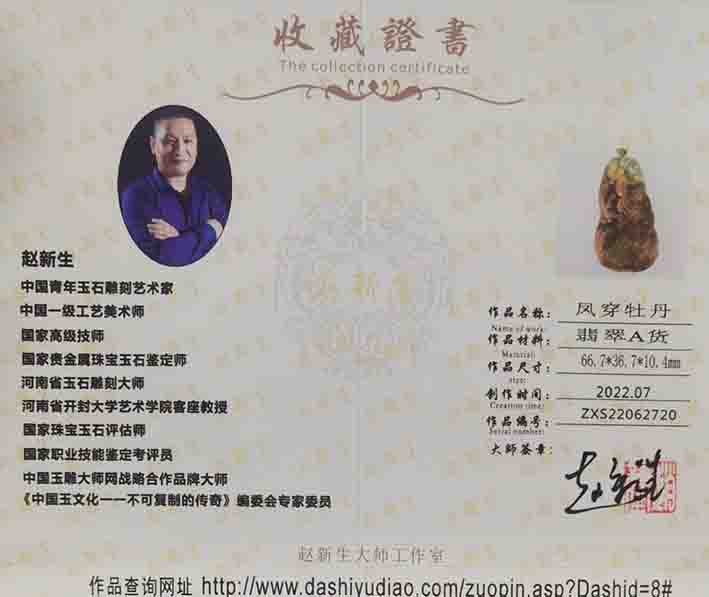 收藏證書
The collection certificate
赵新生
中国青年玉石雕刻艺术家
中国一级工艺美术师
国家高级技师
国家贵金属珠宝玉石鉴定师
河南省玉石雕刻大师
河南省开封大学艺术学院客座教授
国家珠宝玉石评估师
国家职业技能鉴定考评员
中国玉雕大师网战略合作品牌大师
《中国玉文化一一不可复制的传奇》编委会专家委员
作品名称: 凤穿牡丹
Name of work:
作品材料: 翡翠A货
Material:
作品尺寸: 66.7*36.7*10.4mm
size:
创作时间: 2022.07
Creation time:
作品编号: ZXS22062720
Serial number:
大師签章:
赵新生
赵新生大师工作室
作品查询网址 http://www.dashiyudiao.com/zuopin.asp?Dashid=8#